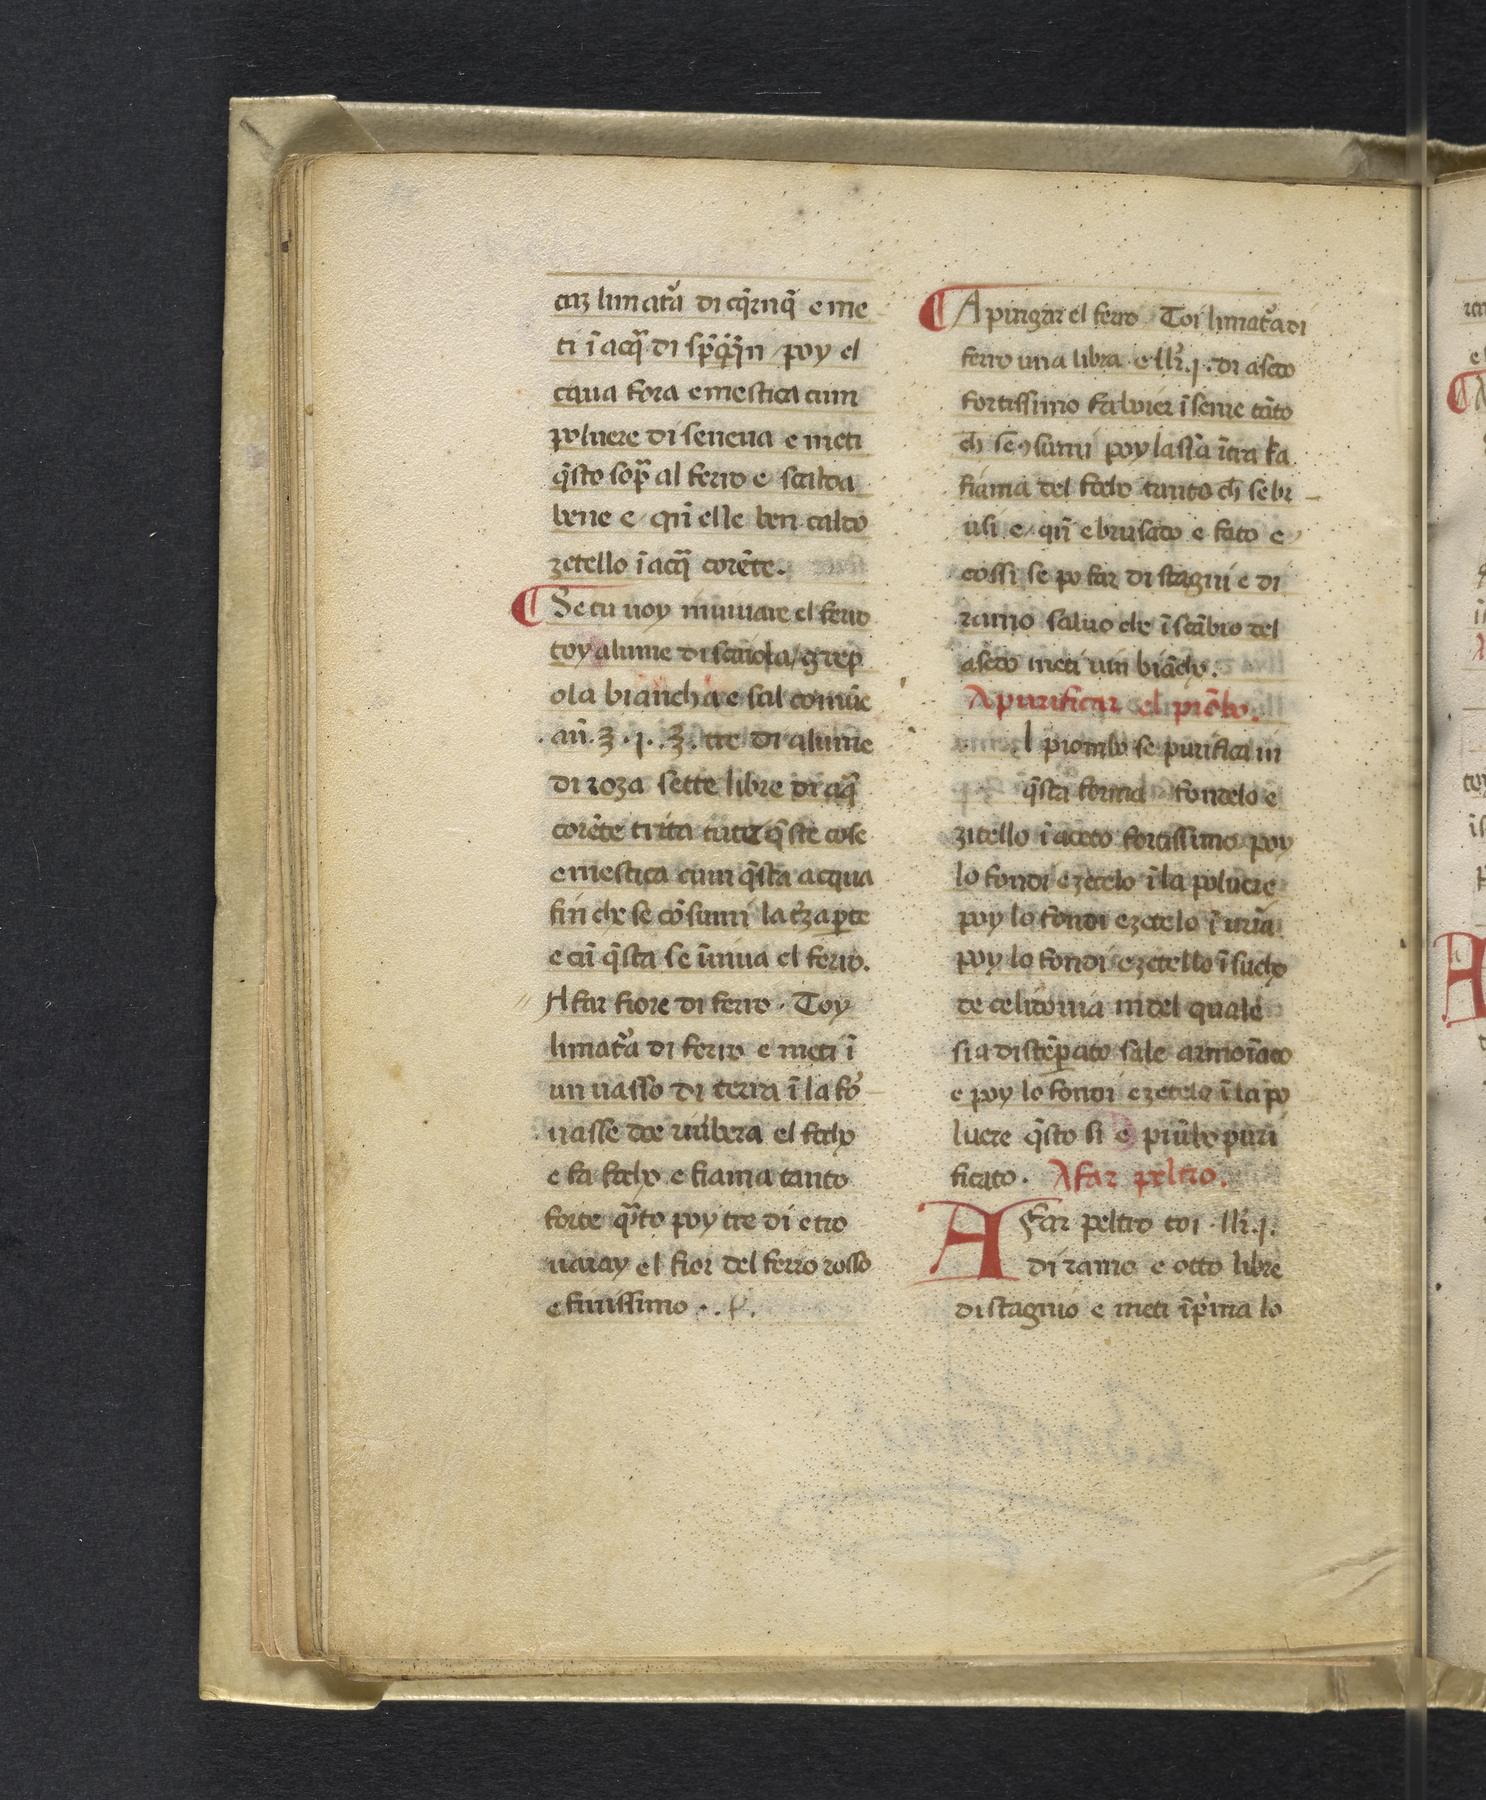 limatᷓa di e me
ti ī acq̄ di poy el
caua fora e mestica cum
poluere di seneua e meti
q̄sto sop̄ al ferro e scalda
bene e qn̄ elle ben caldo
zetello ī acq̄ corēte.
¶ Se tu uoy el ferro
toy alume di scaiola/grep
ola biancha e sal comūe
an̄. ʒ. j. ʒ. tre di alume
di roza sette libre di aq̄
corēte trita tute q̄ste cose
e mestica cum q̄sta acqua
fin che se cōsumi la t̄za ꝑte
e cū q̄sta se el ferro.
A far fiore di ferro. Toy
limat᷑a di ferro e meti ī
un uasso di terra ī la for̄
nasse doe el focho
e fa focho e fiama tanto
forte q̄to poy tre di e tro
uaray el fior del ferro rosso
e finissimo . .
¶ A purgar el ferro Toi limat᷑a di
ferro una libra e llr̄. j. di aseto
fortissimo īseme tāto
ch̄ se ꝯsumi poy lasta ītra fa
fiama del focho tanto ch̄ se br
usi e qn̄ e brusato e fato e
cossi se po far di stagni e di
ramo saluo che ī scābio del
aseto meti uin biācho.
A purificar el piōbo.
l piombo se purifica in
q̄sta forma fondelo e
zitello ī aceto fortissimo poy
lo fondi e zetelo ī la poluere
poy lo fondi e zetelo ī urīa
poy lo fondi e zetello ī sucho
de celidonia in del quale
sia distēpato sale armoīaco
e poy lo fondi e zetelo ī la po
luere q̄sto si e piūbo puri
ficato. A far peltro.
A Far peltro toi . llr̄. j.
di ramo e otto libre
di stagnio e meti īp̄ma lo